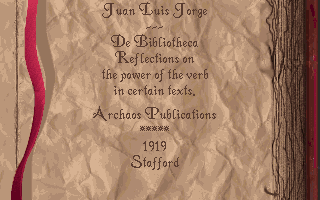 Juan Luis Jorge
De Bibliotheca
Reflections on
the power of the verb
in certain texts.
Archaos Publications
*****
1919
Stafford